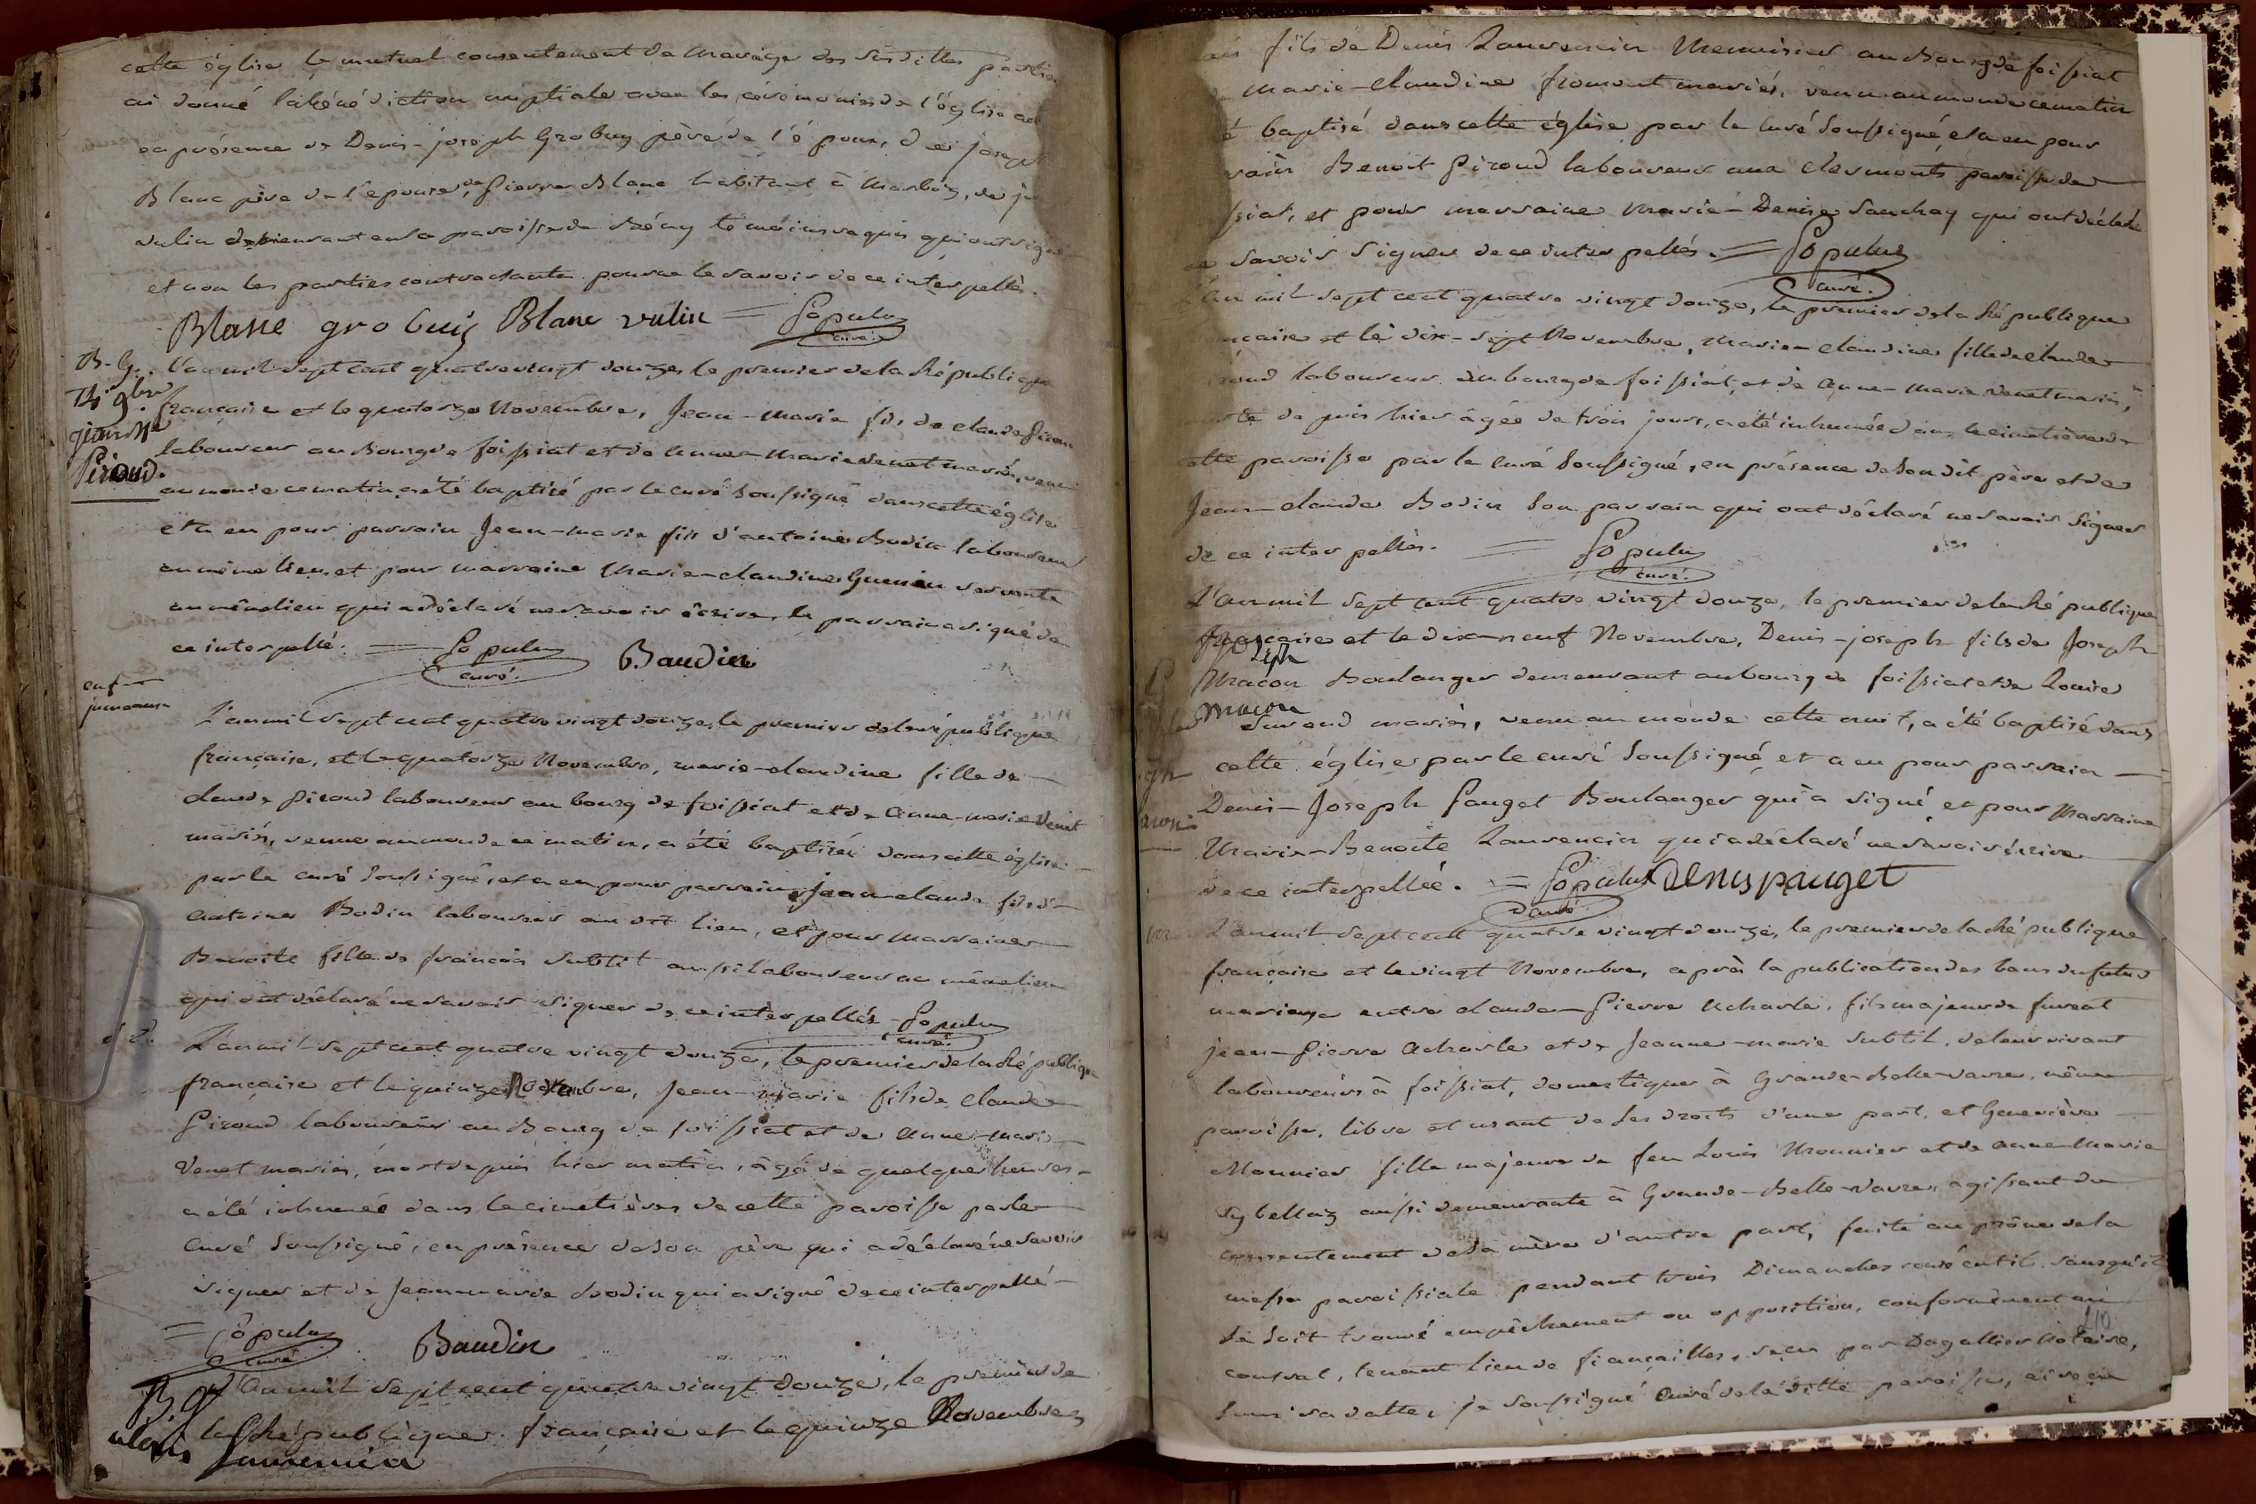 cette église le mutuel consentement de mariage des susdittes parties
ai donné la bénédiction nuptiale avec les cérémonies de l'église
en présence de Denis-joseph Grobuy père de l'époux, de joseph
Blanc père de l'épouse, de Pierre Blanc habitant à Marboz, de
vulin demeurant en sa paroisse de témoins requis qui ont signé
et non les parties contractantes pour ne le savoir de ce interpellés.
Blanc grobuis Blanc vulin = Populus
curé.
B. G. L'an mil sept cent quatre vingt douze, le premier de la République
14 9bre française et le quatorze Novembre, Jean-Marie fils de claude Piroud
jean m
laboureur au Bourg de foissiat et de Anne-Marie Venet mariés, venu
Piroud.
au monde ce matin a été baptisé par le curé soussigné dans cette église
et a eu pour parrain Jean-marie fils d'antoine Bodin laboureur
au même lieu et pour marraine Marie-claudine servante
au même lieu qui a déclaré ne savoir écrire, le parrain a signé de
ce interpellé. = Populus Baudin
curé.
enf
jumeaux
L'an mil sept cent quatre vingt douze, le premier de la république
française, et le quatorze Novembre, marie-claudine fille de
claude Piroud laboureur au bourg de foissiat et de Anne-marie Venet
mariés, venue au monde ce matin, a été baptisée dans cette église
par le curé soussigné, et a eu pour parrain Jean claude fils d'
Antoine Bodin laboureur au dit lieu, et pour Marraine
Benoite fille de françois Subtil aussi laboureur au même lieu
qui ont déclaré ne savoir signer de ce interpellés - Populus
curé.
L'an mil sept cent quatre vingt douze, le premier de la République
française et le quinze Novembre, Jean-marie fils de Claude
Piroud laboureur au Bourg de foissiat et de Anne-Marie
Venet mariés, mort depuis hier matin, âgé de quelques heures
a été inhumé dans le cimetière de cette paroisse par le
Curé soussigné, en présence de son père qui a déclaré ne savoir
signer et de Jean marie Bodin qui a signé de ce interpellé -
= Populus Baudin
curé
B. g. L'an mil sept cent quatre vingt douze, le premier de
la République française et le quinze Novembre
alexis Laurencin
fils de Denis Laurencin Menuisier au Bourg de foissiat
Marie-claudine fromont mariés, venu au monde ce matin
baptisé dans cette église par le curé soussigné, et a eu pour
Benoit Piroud laboureur aux clermonts paroisse de
et pour marraine Marie-Denise Sauchay qui ont déclaré
ne savoir signer de ce interpellés. = Populus
curé.
L'an mil sept cent quatre vingt douze, le premier de la République
française et le dix-sept Novembre, Marie-claudine fille de claude
Piroud laboureur au bourg de foissiat, et de Anne-Marie Venet mariés,
morte depuis hier âgée de trois jours, a été inhumée dans le cimetière de
cette paroisse par le curé soussigné, en présence de son dit père et de
Jean-claude Bodin son parrain qui ont déclaré ne savoir signer
de ce interpellés. = Populus
curé.
L'an mil sept cent quatre vingt douze, le premier de la République
française et le dix-neuf Novembre, Denis-joseph fils de Joseph
joseph
Macon Boulanger demeurant au bourg de foissiat et de Louise
macon
mariés, venu au monde cette nuit, a été baptisé dans
cette église par le curé soussigné et a eu pour parrain
Denis-Joseph Pauget Boulanger qui a signé et pour Marraine
Marie-Benoite Laurencin qui a déclaré ne savoir écrire
de ce interpellée. = Populus Denis pauget
curé.
L'an mil sept cent quatre vingt douze, le premier de la République
française et le vingt Novembre, après la publication des bans du futur
mariage entre claude-Pierre Acharle, fils majeur de furent
jean-Pierre Acharle et de Jeanne-marie Subtil, de leur vivant
laboureurs à foissiat, domestique à Grande-Belle-vavre, même
paroisse, libre et usant de ses droits d'une part, et Geneviève
Monnier fille majeure de feu Louis Monnier et de Anne-Marie
Sybellaz aussi demeurante à Grande-Belle-Vavre, agissant du
consentement de sa mère d'autre part, faite au prône de la
messe paroissiale pendant trois Dimanches consécutifs sans qu'il
se soit trouvé empêchement ou opposition, conformément au
210
contrat, tenant lieu de fiançailles, reçu par Dagallier Notaire,
sous sa datte, je soussigné Curé de la ditte paroisse, ai reçu